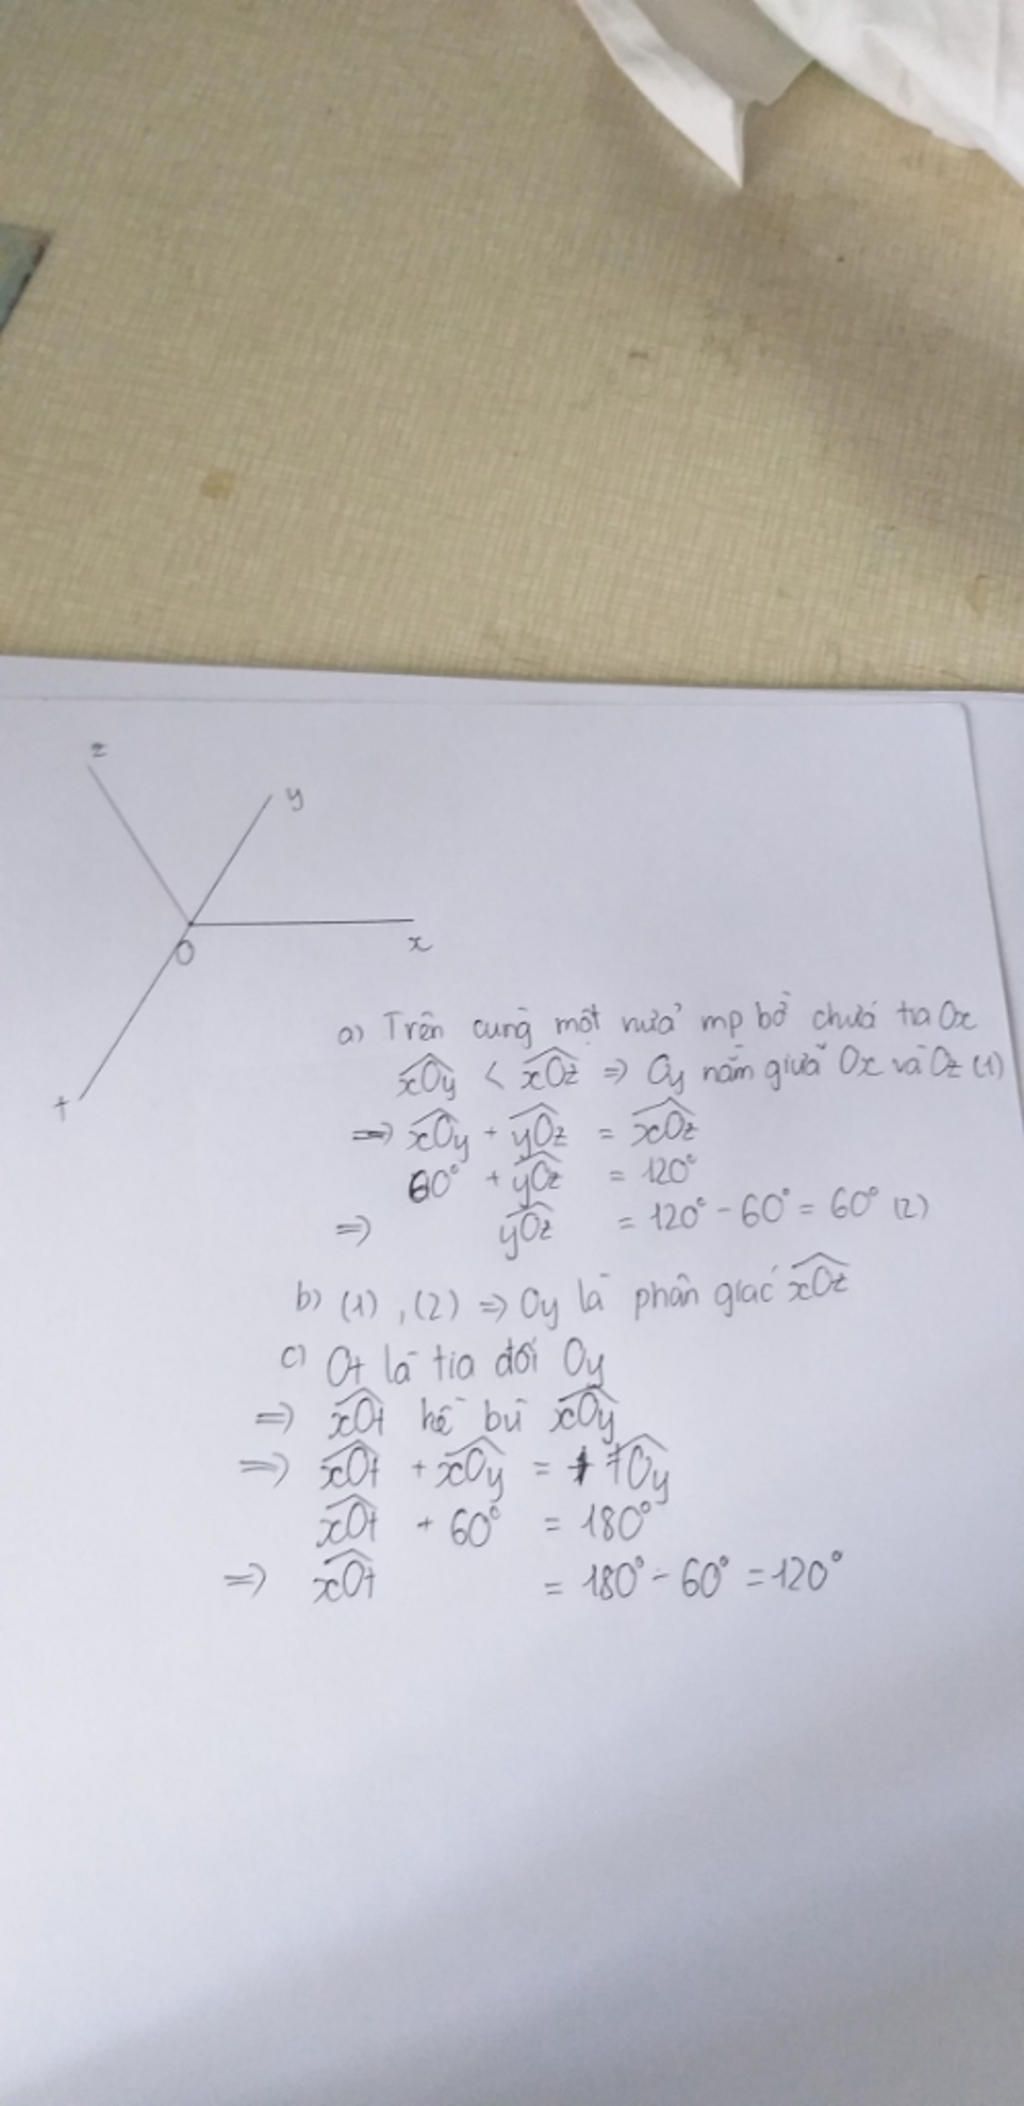 z
y
O
x
t
a) Trên cùng một nửa mp bờ chứa tia Ox
xOy < xOz => Oy nằm giữa Ox và Oz (1)
=> xOy + yOz = xOz
60° + yOz = 120°
=> yOz = 120° - 60° = 60° (2)
b) (1), (2) => Oy là phân giác xOz
c) Ot là tia đối Oy
=> xOt kề bù xOy
=> xOt + xOy = tOy
xOt + 60° = 180°
=> xOt = 180° - 60° = 120°